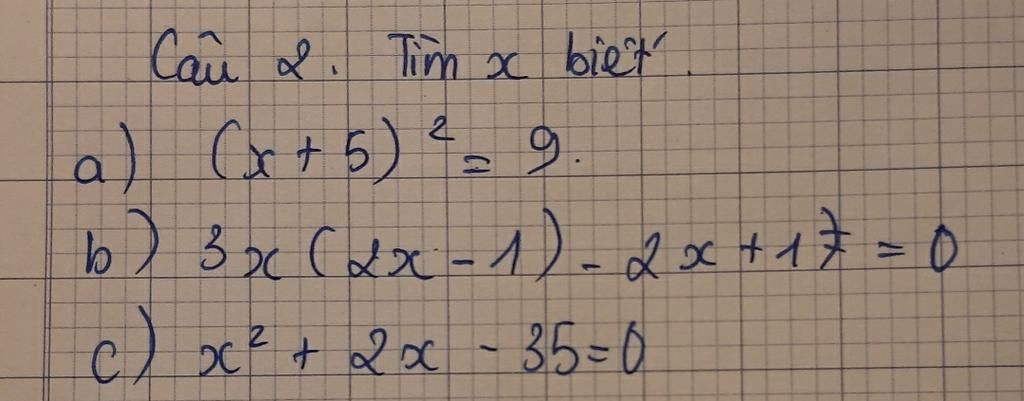 Câu 2. Tìm x biết.
a) (x + 5)² = 9.
b) 3x (2x - 1) - 2x + 17 = 0
c) x² + 2x - 35 = 0